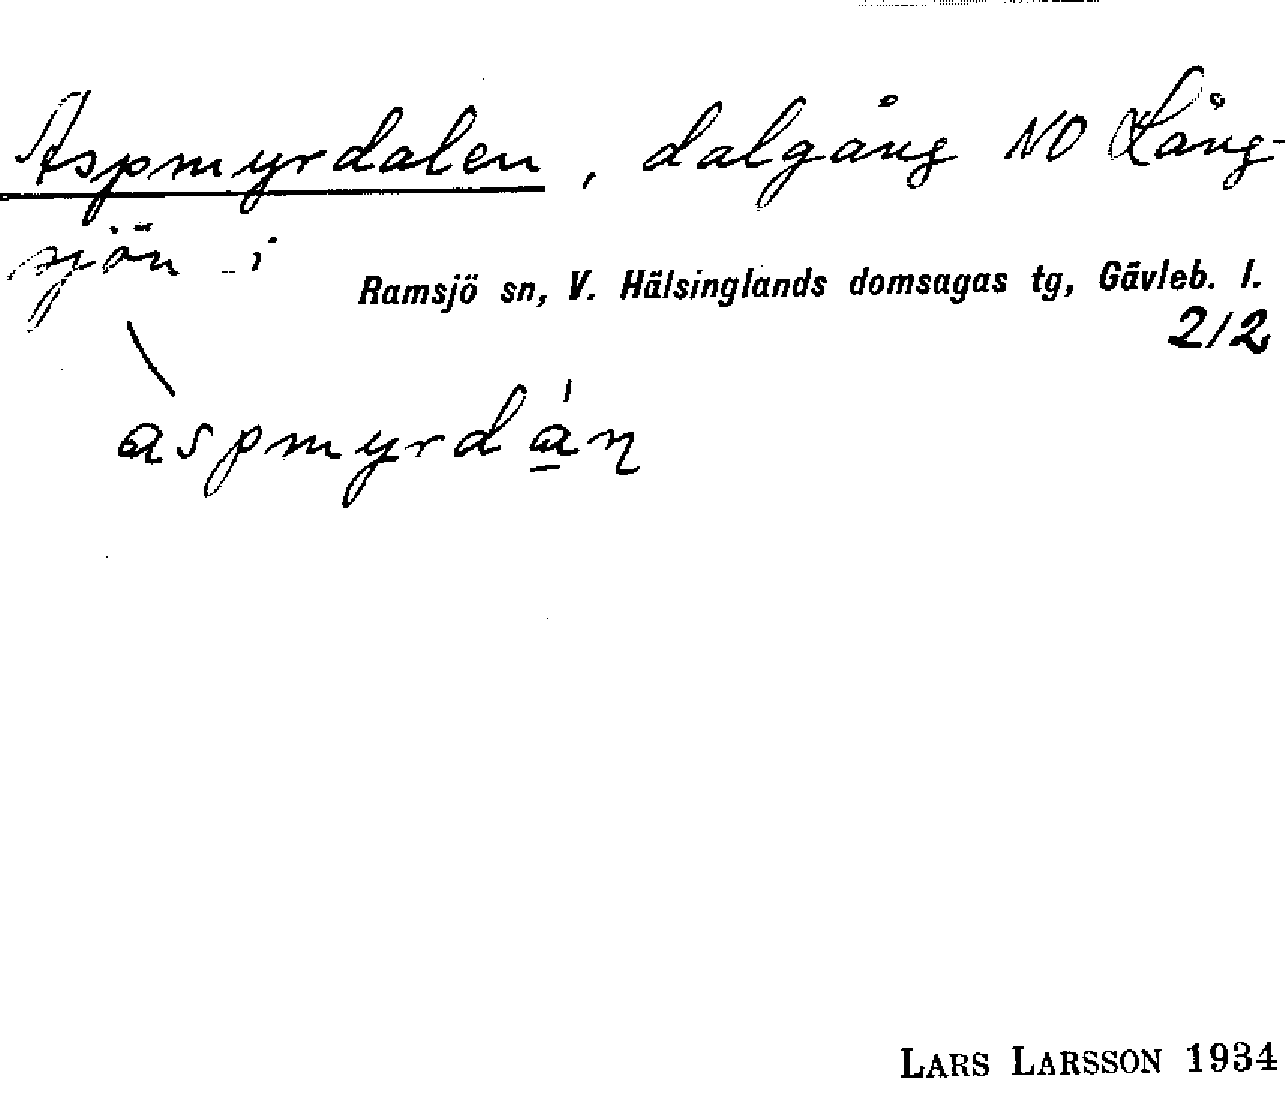 Aspmyrdalen, dalgång NO Lång-
sjön i
Ramsjö sn, V. Hälsinglands domsagas tg, Gävleb. l.
2/2
aspmyrdáṇ
LARS LARSSON 1934